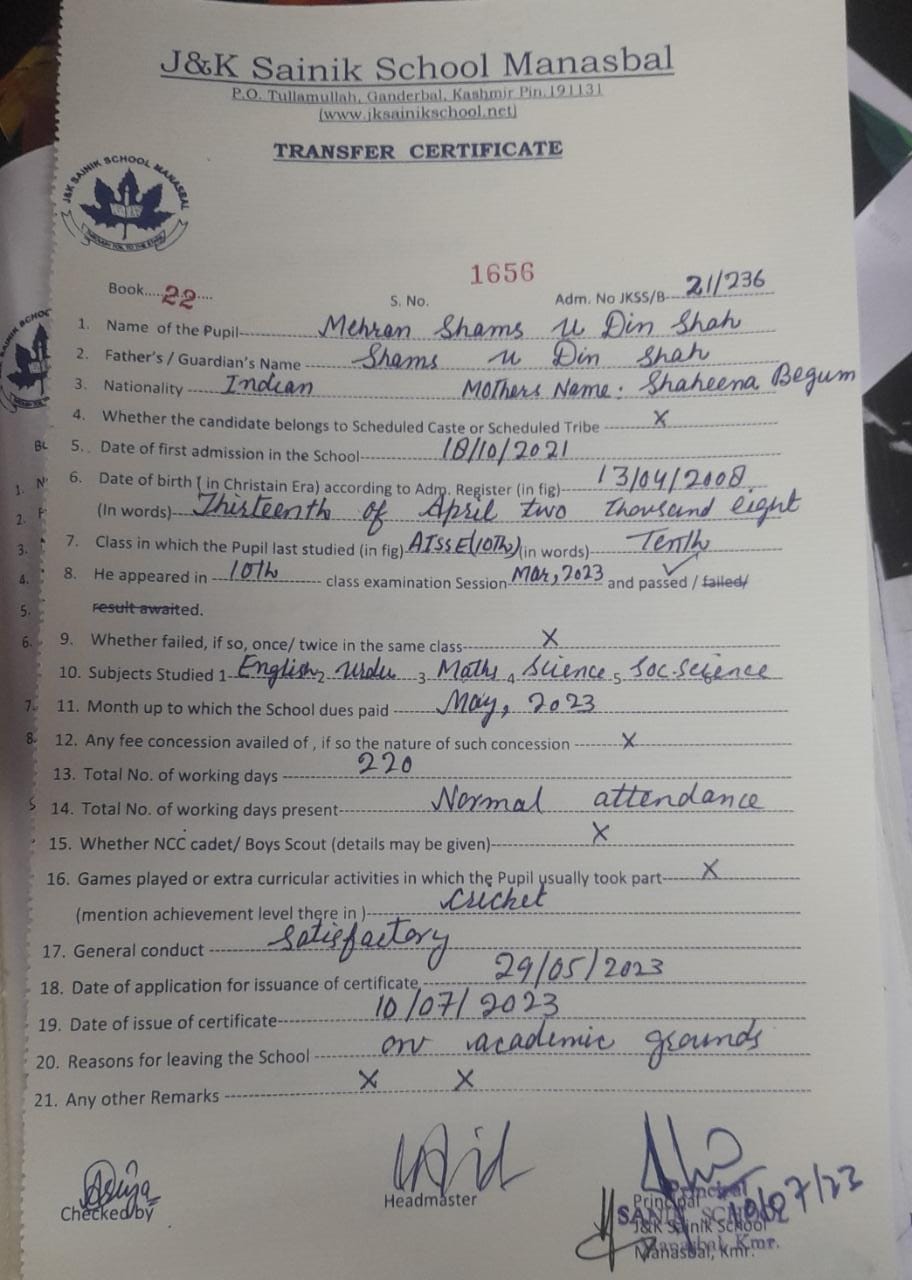 J&K Sainik School Manasbal
P.O. Tullamullah, Ganderbal, Kashmir Pin.191131
(www.jksainikschool.net)
TRANSFER CERTIFICATE
J&K SAINIK SCHOOL MANASBAL
1656
Book....22.... S. No. Adm. No JKSS/B---21/236
1. Name of the Pupil---Mehran Shams u Din Shah
2. Father's / Guardian's Name---Shams u Din Shah
3. Nationality---Indian Mothers Name: Shaheena Begum
4. Whether the candidate belongs to Scheduled Caste or Scheduled Tribe---X
5. Date of first admission in the School---18/10/2021
6. Date of birth ( in Christain Era) according to Adm. Register (in fig)---13/04/2008
(In words)---Thirteenth of April two thousand eight
7. Class in which the Pupil last studied (in fig) AISSE(10th) (in words)---Tenth
8. He appeared in---10th---class examination Session Mar, 2023 and passed / failed/
result awaited.
9. Whether failed, if so, once/ twice in the same class---X
10. Subjects Studied 1 English 2 Urdu 3 Maths 4 Science 5 Soc.science
11. Month up to which the School dues paid---May, 2023
12. Any fee concession availed of , if so the nature of such concession---X
13. Total No. of working days---220
14. Total No. of working days present---Normal attendance
15. Whether NCC cadet/ Boys Scout (details may be given)---X
16. Games played or extra curricular activities in which the Pupil usually took part---X
(mention achievement level there in )---Cricket
17. General conduct---Satisfactory
18. Date of application for issuance of certificate---29/05/2023
19. Date of issue of certificate---10/07/2023
20. Reasons for leaving the School---on academic grounds
21. Any other Remarks---X X
Checked by
Headmaster
Principal
J&K Sainik School
Manasbal, Kmr.
10/07/23